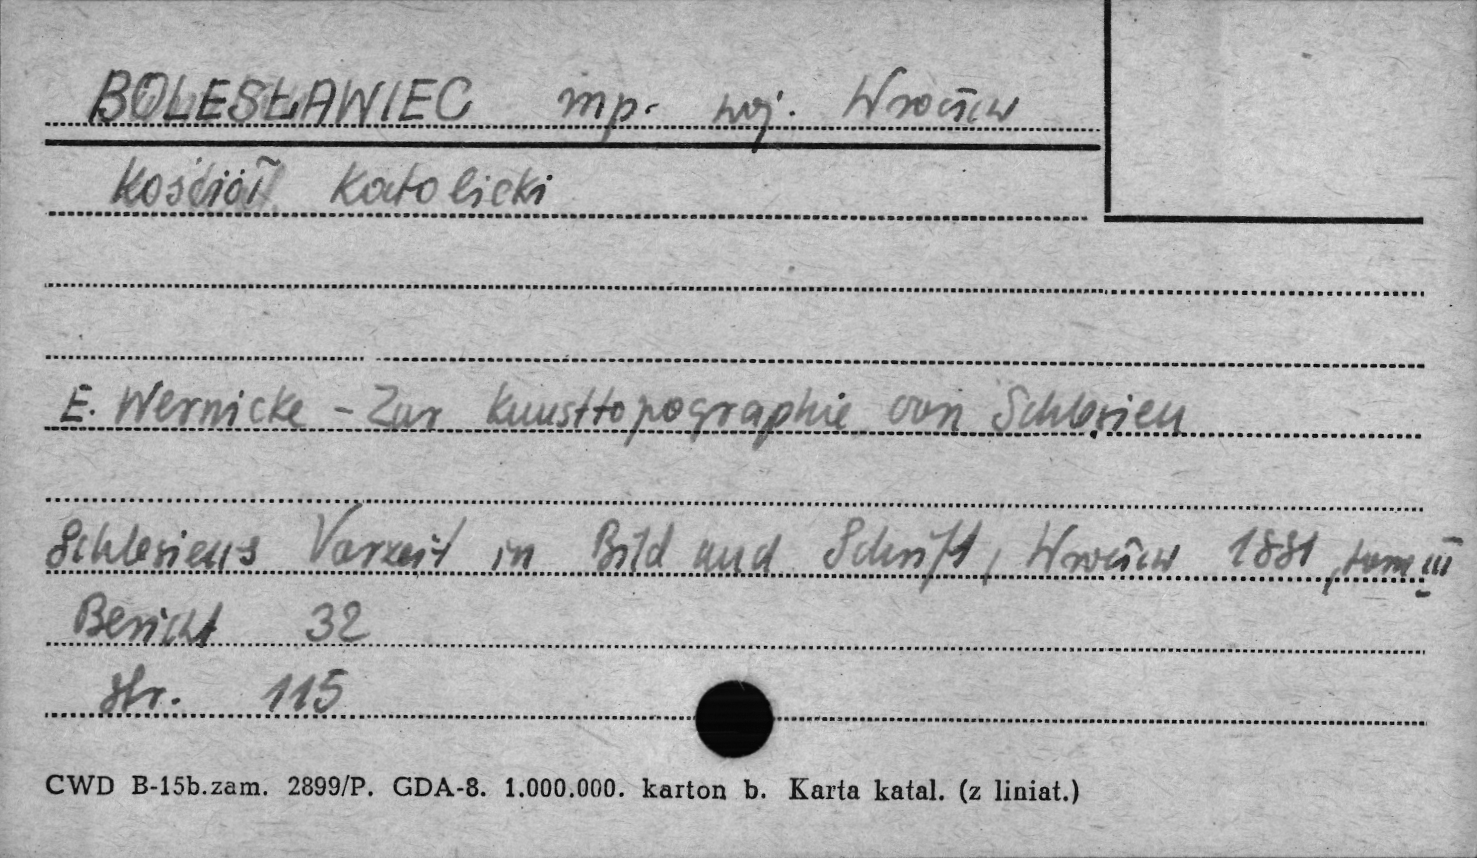 BOLESŁAWIEC mp. woj. Wrocław
Kościół Katolicki
E. Wernicke - Zur Kunsttopographie von Schlesien
Schlesiens Vorzeit in Bild und Schrift, Wrocław 1881, tom III
Bericht 32
str. 115
CWD B-15b.zam. 2899/P. GDA-8. 1.000.000. karton b. Karta katal. (z liniat.)